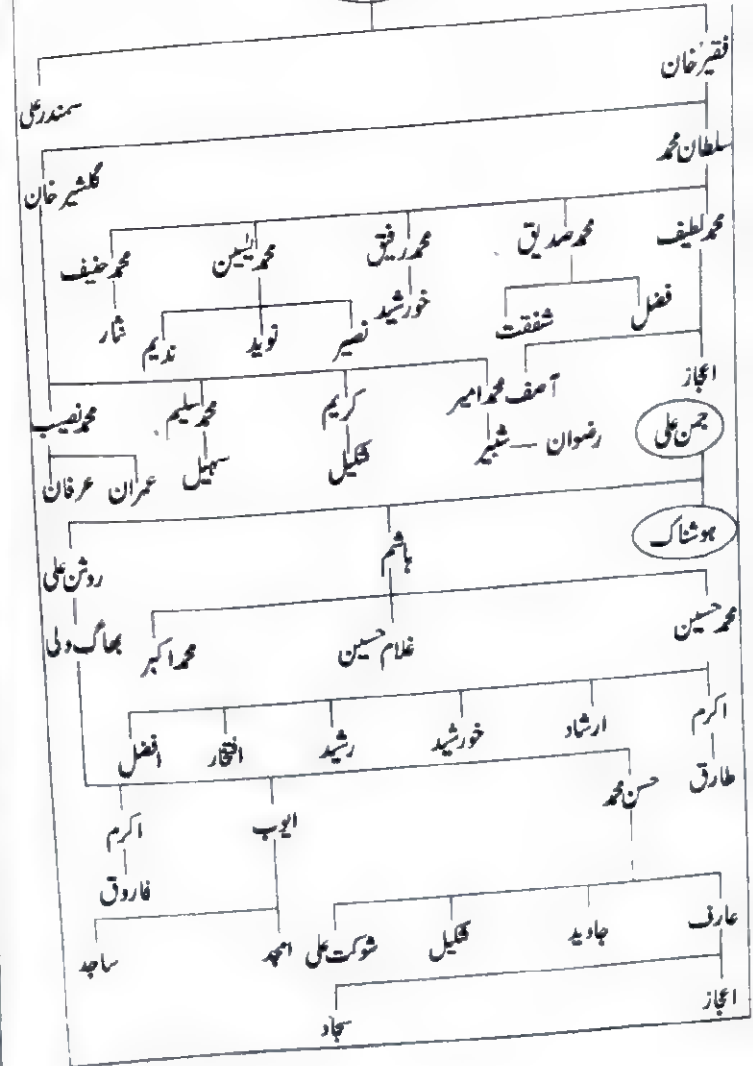 فقیر خان
سمندر علی
سلطان محمد
گلشیر خان
محمد لطیف محمد صدیق محمد رفیق محمد یٰسین محمد حنیف
فضل شفقت خورشید نصیر نوید ندیم نثار
اعجاز آصف محمد امیر کریم محمد سلیم محمد نصیب
جمن علی رضوان — شبیر شکیل سہیل عمران عرفان
ہوشناک ہاشم روشن علی
محمد حسین غلام حسین محمد اکبر بھاگ ولی
اکرم ارشاد خورشید رشید افتخار افضل
طارق حسن محمد ایوب اکرم
فاروق
عارف جاوید شکیل شوکت علی امجد ساجد
اعجاز سجاد